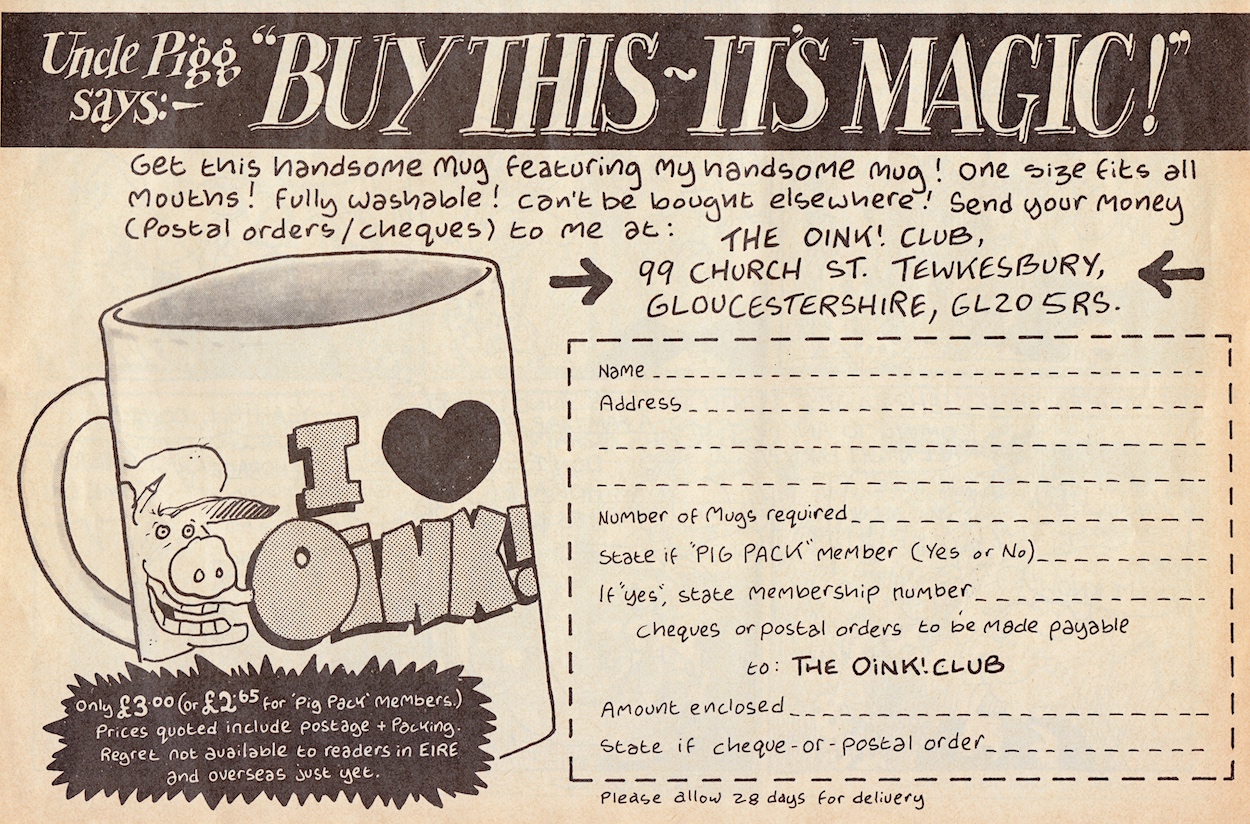 Uncle Pigg
says:-
"BUY THIS ~ IT'S MAGIC!"
Get this handsome mug featuring my handsome mug! One size fits all
mouths! Fully washable! Can't be bought elsewhere! Send your money
(Postal orders/cheques) to me at:
THE OINK! CLUB,
99 CHURCH ST. TEWKESBURY,
GLOUCESTERSHIRE, GL20 5RS.
I ♥
OINK!
Only £3.00 (or £2.65 for 'Pig Pack' members.)
Prices quoted include postage + Packing.
Regret not available to readers in EIRE
and overseas just yet.
Name
Address
Number of Mugs required
State if "PIG PACK" member (Yes or No)
If "yes", state membership number
Cheques or postal orders to be made payable
to: THE OINK! CLUB
Amount enclosed
State if cheque-or-postal order
Please allow 28 days for delivery